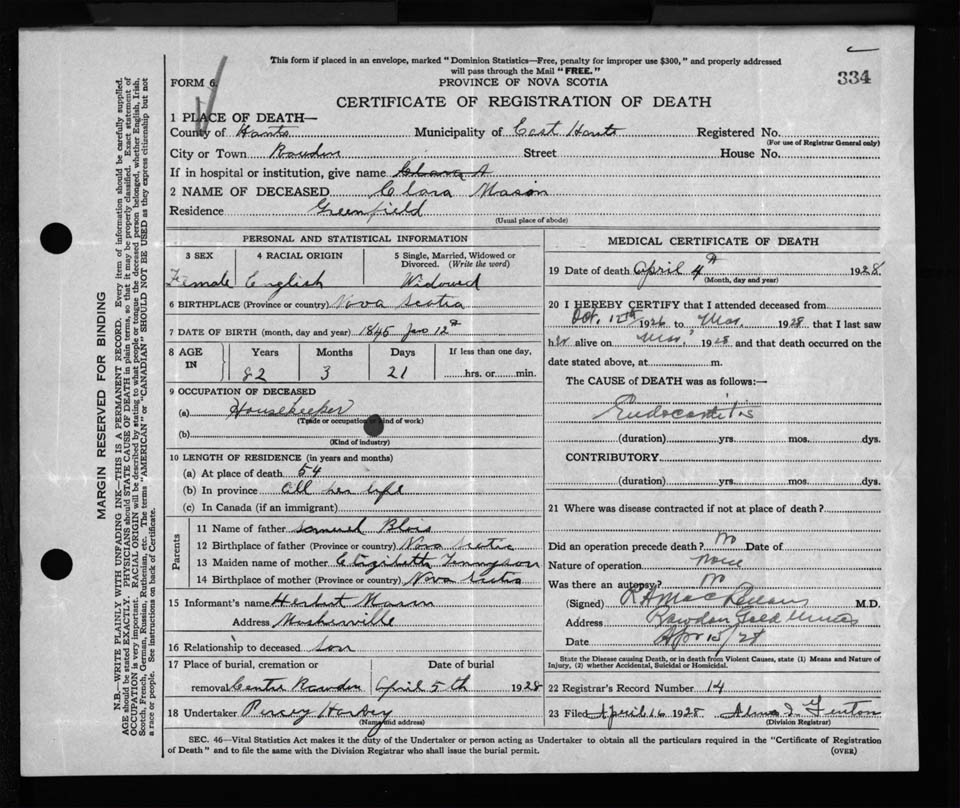 This form if placed in an envelope, marked "Dominion Statistics—Free, penalty for improper use $300," and properly addressed
will pass through the Mail "FREE."
334
FORM 6.
PROVINCE OF NOVA SCOTIA
CERTIFICATE OF REGISTRATION OF DEATH
1 PLACE OF DEATH—
County of Hants Municipality of East Hants Registered No.
(For use of Registrar General only)
City or Town Rawdon Street House No.
If in hospital or institution, give name Clara A
2 NAME OF DECEASED Clara Mason
Residence Greenfield
(Usual place of abode)
PERSONAL AND STATISTICAL INFORMATION
3 SEX 4 RACIAL ORIGIN 5 Single, Married, Widowed or Divorced. (Write the word)
Female English Widowed
6 BIRTHPLACE (Province or country) Nova Scotia
7 DATE OF BIRTH (month, day and year) 1845 Jan 12th
8 AGE IN Years Months Days If less than one day,
82 3 21 hrs. or min.
9 OCCUPATION OF DECEASED
(a) Housekeeper
(Trade or occupation or kind of work)
(b)
(Kind of industry)
10 LENGTH OF RESIDENCE (in years and months)
(a) At place of death 54
(b) In province all her life
(c) In Canada (if an immigrant)
Parents
11 Name of father Samuel Blois
12 Birthplace of father (Province or country) Nova Scotia
13 Maiden name of mother Elizibeth Tennyson
14 Birthplace of mother (Province or country) Nova Scotia
15 Informant's name Herbert Mason
Address Mosherville
16 Relationship to deceased Son
17 Place of burial, cremation or Date of burial
removal Centre Rawdon April 5th 1928
18 Undertaker Percey
(Name and address)
MEDICAL CERTIFICATE OF DEATH
19 Date of death April 4th 1928
(Month, day and year)
20 I HEREBY CERTIFY that I attended deceased from
Oct. 12th 1926 to Mar. 1928 that I last saw
her alive on Mar. 1928 and that death occurred on the
date stated above, at m.
The CAUSE of DEATH was as follows:—
Endocarditis
(duration) yrs. mos. dys.
CONTRIBUTORY
(duration) yrs. mos. dys.
21 Where was disease contracted if not at place of death?
Did an operation precede death? No Date of
Nature of operation None
Was there an autopsy? No
(Signed) M.D.
Address Rawdon Gold Mines
Date Apr 15/28
State the Disease causing Death, or in death from Violent Causes, state (1) Means and Nature of
Injury, (2) whether Accidental, Suicidal or Homicidal.
22 Registrar's Record Number 14
23 Filed April 16 1928 Alma I. Fenton
(Division Registrar)
SEC. 46—Vital Statistics Act makes it the duty of the Undertaker or person acting as Undertaker to obtain all the particulars required in the "Certificate of Registration
of Death" and to file the same with the Division Registrar who shall issue the burial permit. (OVER)
MARGIN RESERVED FOR BINDING
N.B.—WRITE PLAINLY WITH UNFADING INK—THIS IS A PERMANENT RECORD. Every item of information should be carefully supplied.
AGE should be stated EXACTLY. PHYSICIANS should STATE CAUSE OF DEATH in plain terms, so that it may be properly classified. Exact statement of
OCCUPATION is very important. RACIAL ORIGIN will be described by stating to what people or tongue the deceased person belonged, whether English, Irish,
Scotch, French, German, Russian, Ruthenian, etc. The terms "AMERICAN" or "CANADIAN" SHOULD NOT BE USED as they express citizenship but not
a race or people. See instructions on back of Certificate.